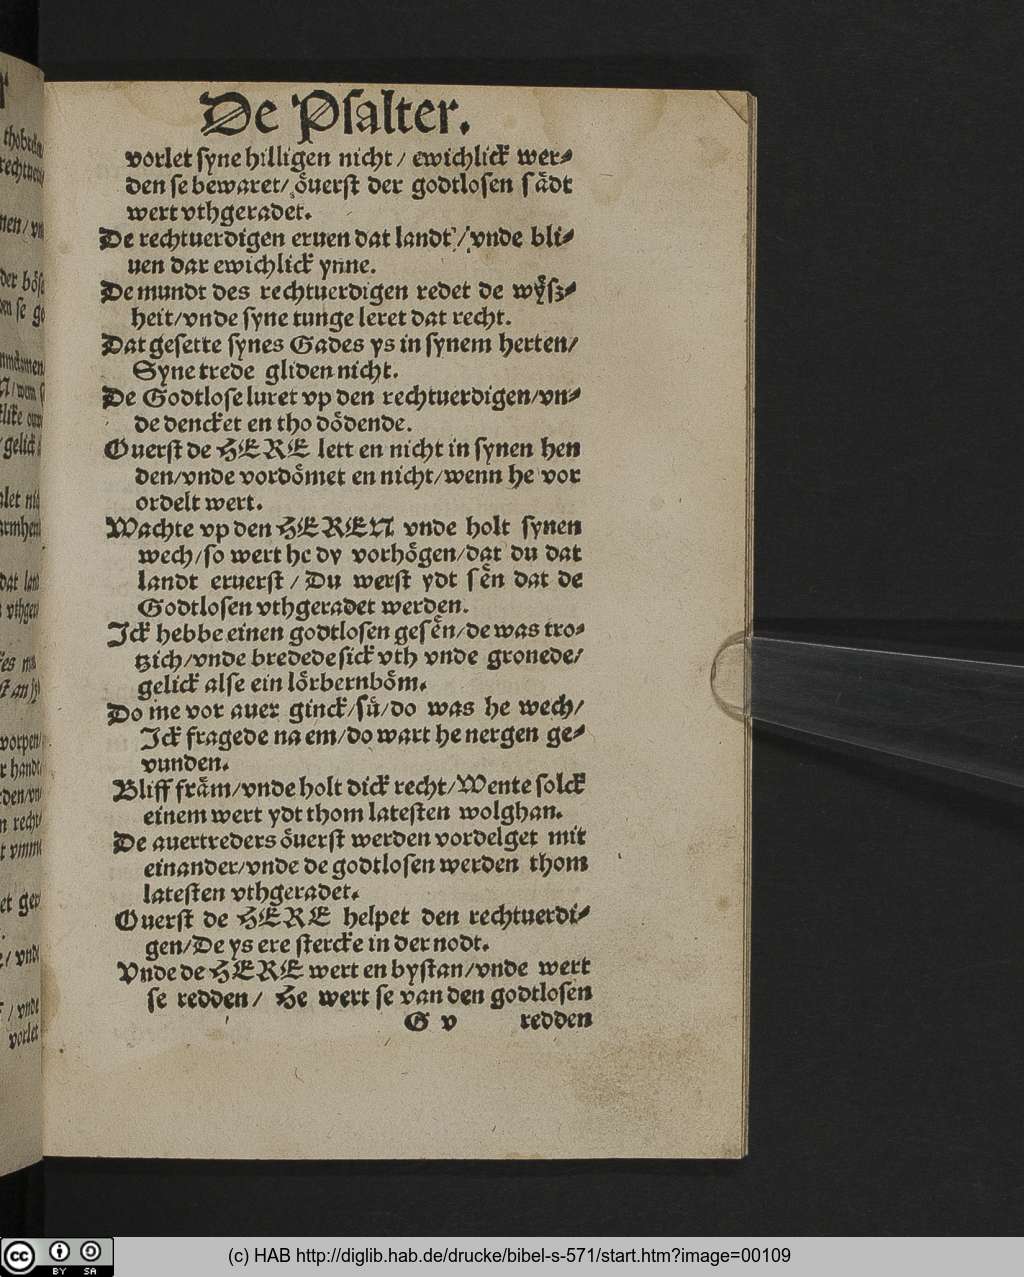 De Psalter.
vorlet syne hilligen nicht / ewichlick wer⸗
den se bewaret/ ȯuerst der godtlosen såd t
wert vthgeradet.
De rechtuerdigen eruen dat landt /vnde bli⸗
uen dar ewichlick ynne.
De mundt des rechtuerdigen redet de wyͤsz⸗
heit/vnde syne tunge leret dat recht.
Dat gesette synes Gades ys in synem herten/
Syne trede gliden nicht.
De Godtlose luret vp den rechtuerdigen/vn⸗
de dencket en tho doͤdende.
Ouerst de HERE lett en nicht in synen hen
den/vnde vordoͤmet en nicht/wenn he vor
ordelt wert.
Wachte vp den HEREN vnde holt synen
wech/so wert he dy vorhoͤgen/dat du dat
landt eruerst / Du werst ydt seͤn dat de
Godtlosen vthgeradet werden.
Ick hebbe einen godtlosen geseͤn/de was tro⸗
tzich/vnde bredede sick vth vnde gronede/
gelick alse ein loͤrbernboͤm.
Do me vor auer ginck/suͤ/do was he wech/
Ick fragede na em/do wart he nergen ge⸗
vunden.
Bliff fraͤm/vnde holt dick recht/Wente solck
einem wert ydt thom latesten wolghan.
De auertreders oͤuerst werden vordelget mit
einander/vnde de godtlosen werden thom
latesten vthgeradet.
Ouerst de HERE helpet den rechtuerdi⸗
gen/De ys ere stercke in der nodt.
Vnde de HERE wert en bystan/vnde wert
se redden / He wert se van den godtlosen
G v redden
(c) HAB http://diglib.hab.de/drucke/bibel-s-571/start.htm?image=00109
cc BY SA